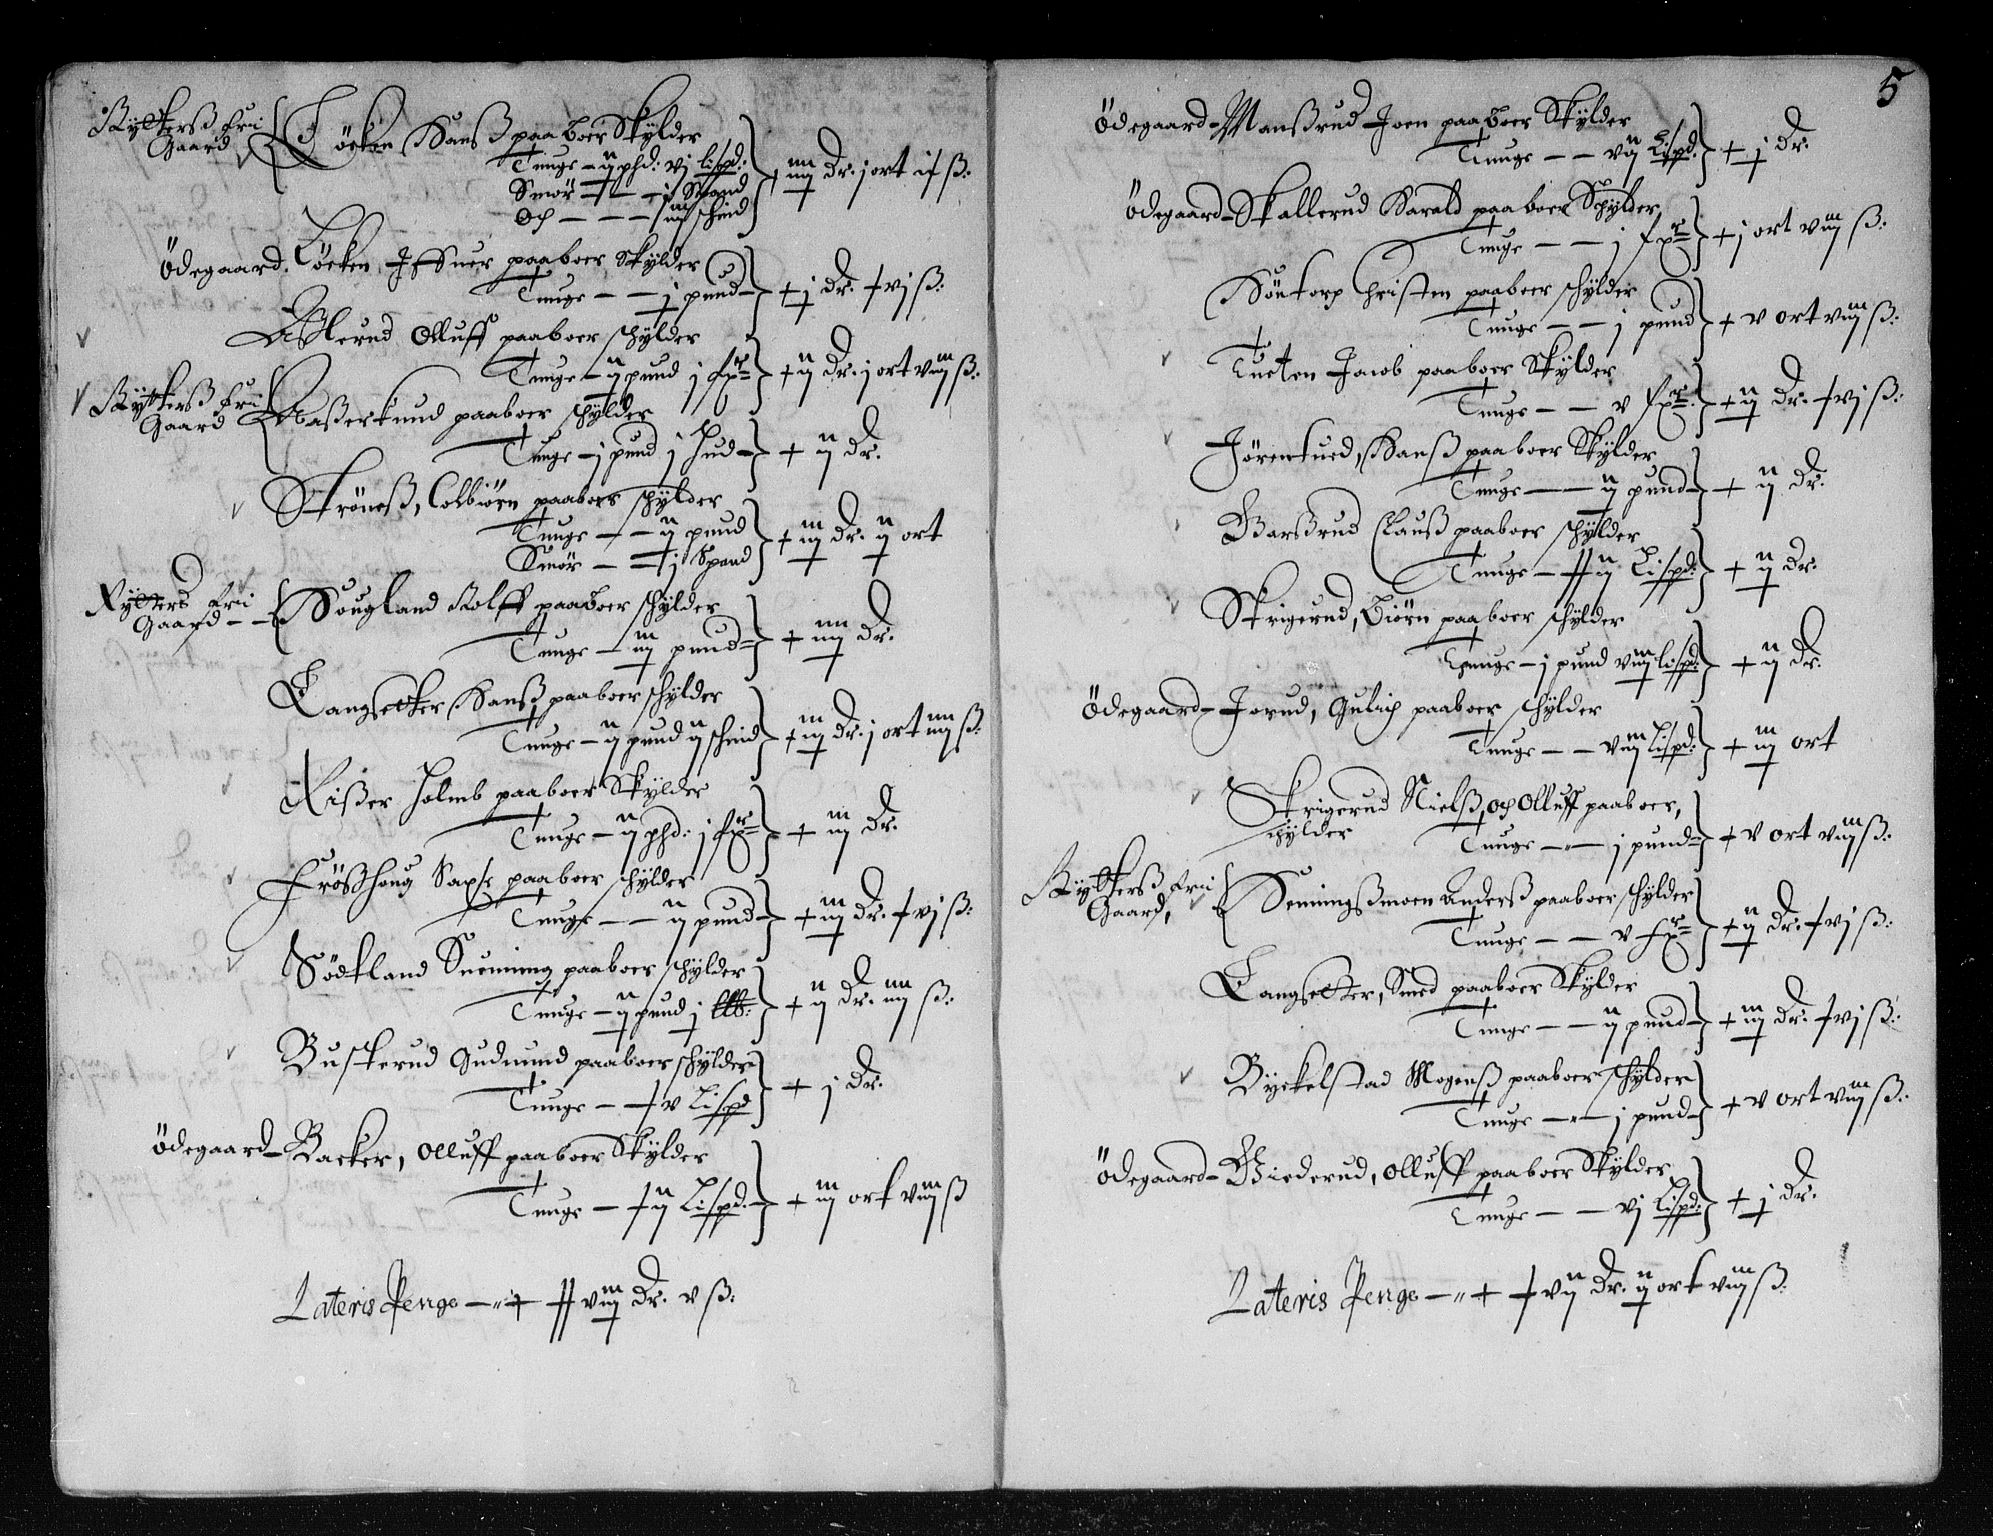 Rytterß frii
Gaard
Löeken Hanß paaboer Skylder
Tunge – ij phd: vj lispd:
Smör – – j Spand
Och – – – iiij schind
+ iiij Dr. j ort ß:
Ödegaard. Löeken, Iffuer paaboer Skylder
Tunge – – j pund – + j Dr. + vj ß:
Olluff paaboer schylder
Tunge – ij pund j fxr + ij Dr. j ort viij ß:
Rytterß frii
Gaard
paaboer schylder
Tunge – j pund j Hud – + ij Dr.
Ströneß, Colbiörn paaboer schylder
Tunge – – ij pund
Smör – – j Spand
+ iij Dr. ij ort
Rytters frii
Gaard – –
Hougland Rolff paaboer schylder
Tunge – iij pund – + iiij Dr.
Langsetter Hanß paaboer schylder
Tunge – ij pund ij schind + iij Dr. j ort iiij ß:
Rißer Holmb paaboer Skylder
Tunge – ij phd: j fxr + iij Dr.
Frößhoug Saxe paaboer schylder
Tunge – – ij pund – + iij Dr. + vj ß:
Södtland Suening paaboer schylder
Tunge – ij pund j + ij Dr. iiij ß:
Buskerud Gudmund paaboer schylder
Tunge – + v Lispd + j Dr.
Ödegaard – Backer, Olluff paaboer Skylder
Tunge – + ij Lispd. – + iij ort viij ß
Lateris Penge – „ + ++ viij Dr. v ß:
5
Ödegaard – Manßrud Joen paaboer Skylder
Tunge – – vij Lispd. + j Dr.
Ödegaard – Skallerud Harald paaboer Schylder
Tunge – – j fxr + j ort viij ß:
Christen paaboer schylder
Tunge – – j pund + v ort viij ß:
Tueten Jacob paaboer Skylder
Tunge – – v fxr. + ij Dr. + vj ß:
Jörentued, Hanß paaboer Skylder
Tunge – – ij pund – + ij Dr.
Clauß paaboer schylder
Tunge – ++ ij Lispd: + ij Dr.
Skrigerud, Biörn paaboer schylder
Tunge – j pund viij lispd: + ij Dr.
Ödegaard – Jorud, Gulich paaboer schylder
Tunge – – viij Lispd: + iij ort
Skrigerud Nielß, och Olluff paaboer,
schylder Tunge – „ – j pund – + v ort viij ß:
Rytterß frii
Gaard,
Henningßmoen Anderß paaboer schylder
Tunge – – v fxr + ij Dr. + vj ß:
Langsetter, Smed paaboer Skylder
Tunge – – ij pund – + iij Dr. + vj ß:
Byckelstad Mogenß paaboer schylder
Tunge – „ – j pund – + v ort viij ß:
Ödegaard – Giederud, Olluff paaboer Skylder
Tunge – – vj Lispd: + j Dr.
Lateris Penge – „ + + vij Dr. ij ort viij ß: